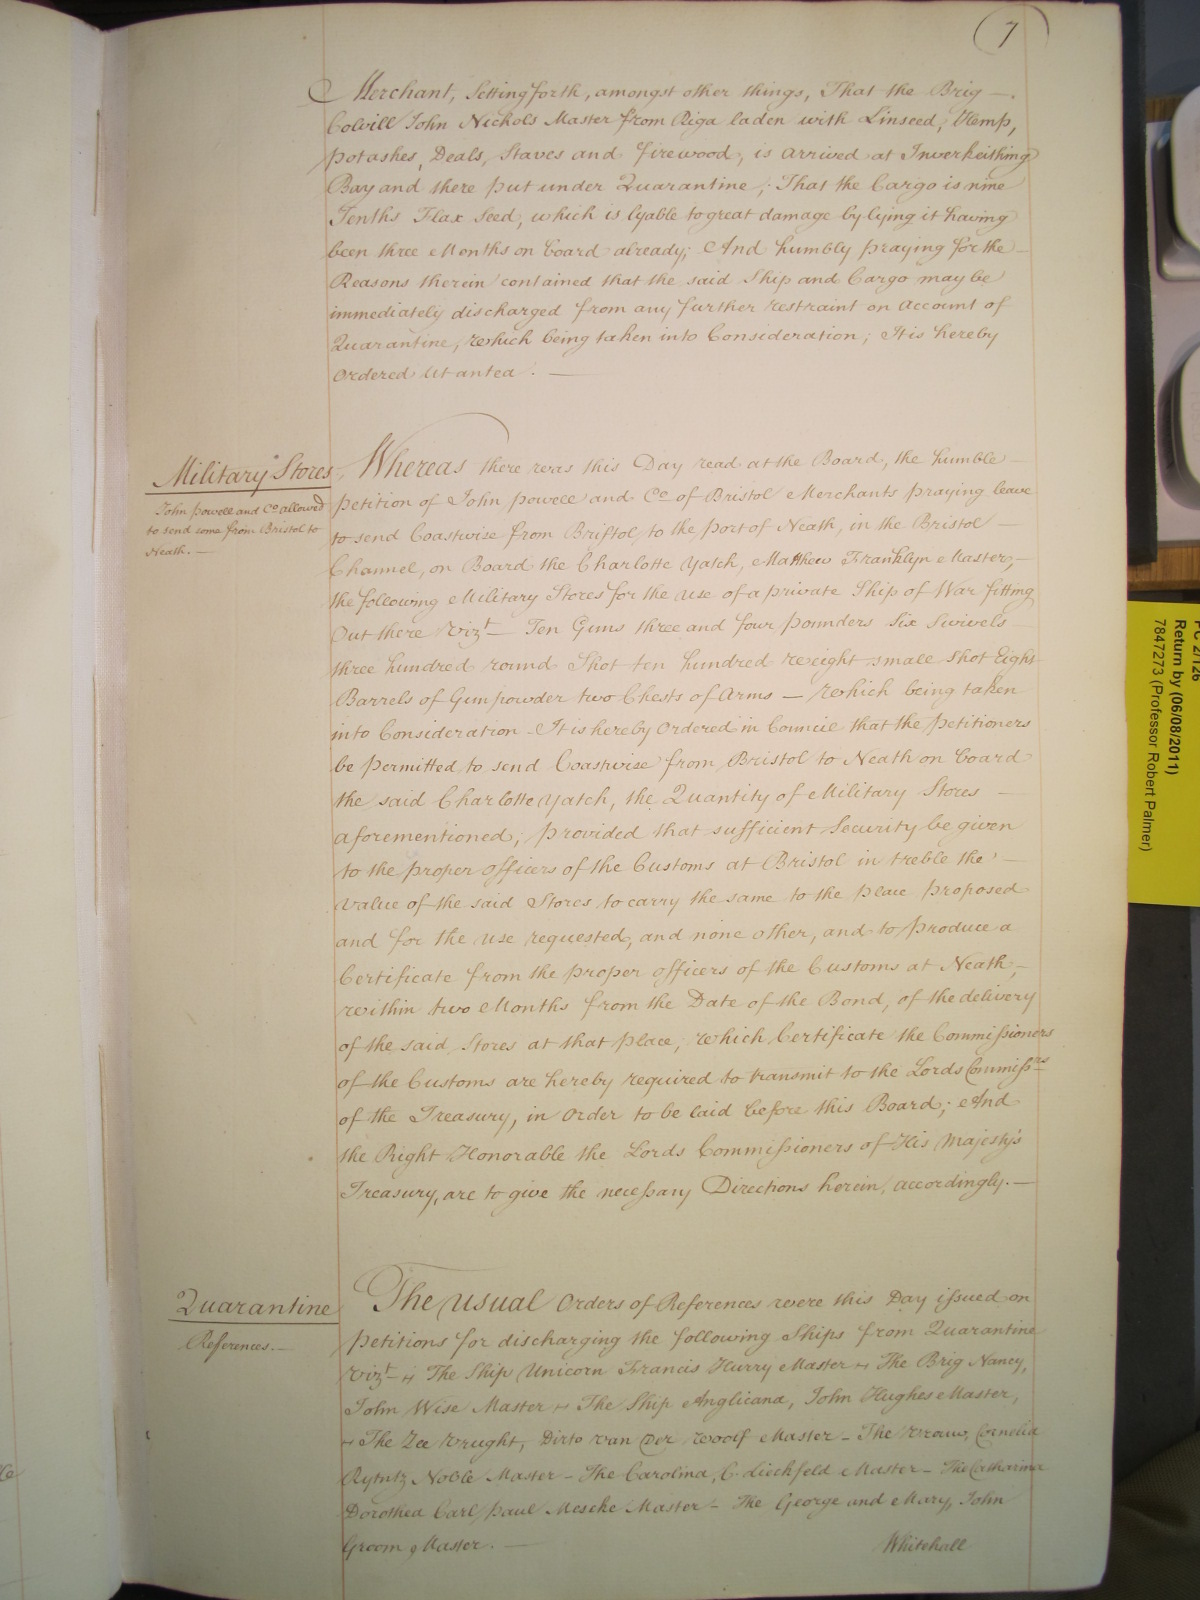 7
Merchant, Setting forth, amongst other things, That the Brig —
Colvill John Nichols Master from Riga laden with Linseed, Hemp,
potashes, Deals, Staves and firewood, is arrived at Inverkeithing
Bay and there put under Quarantine; That the Cargo is nine
Tenths Flax Seed, which is lyable to great damage by lying it having
been three Months on board already; And humbly praying for the —
Reasons therein contained that the said Ship and Cargo may be
immediately discharged from any further restraint on Account of
Quarantine, which being taken into Consideration; It is hereby
Ordered Ut antea. —
Military Stores
John Powell and Co. allowed
to send some from Bristol to
Neath. —
Whereas there was this Day read at the Board, the humble —
Petition of John Powell and Co. of Bristol Merchants praying leave
to send Coastwise from Bristol to the Port of Neath, in the Bristol —
Channel, on Board the Charlotte Yatch, Matthew Franklyn Master, —
the following Military Stores for the use of a private Ship of War fitting
Out there Vizt — Ten Guns three and four pounders Six Swivels
three hundred round Shot ten hundred weight small shot Eight
Barrels of Gunpowder two Chests of Arms — Which being taken
into Consideration - It is hereby Ordered in Council that the Petitioners
be permitted to send Coastwise from Bristol to Neath on board
the said Charlotte Yatch, the Quantity of Military Stores —
aforementioned; provided that sufficient Security be given
to the proper officers of the Customs at Bristol in treble the —
value of the said Stores to carry the same to the place proposed
and for the use requested, and none other, and to produce a
Certificate from the proper officers of the Customs at Neath, —
within two Months from the Date of the Bond, of the delivery
of the said Stores at that place; which Certificate the Commissioners
of the Customs are hereby required to transmit to the Lords Commissrs
of the Treasury, in Order to be laid before this Board; And
the Right Honorable the Lords Commissioners of His Majesty's
Treasury, are to give the necessary Directions herein, accordingly. —
Quarantine
References. —
The usual Orders of References were this Day issued on
Petitions for discharging the following Ships from Quarantine
Vizt — The Ship Unicorn Francis Hurry Master — The Brig Nancy,
John Wise Master — The Ship Anglicana, John Hughes Master,
— The Zee Vrught, Dirto Van Der Woolf Master — The Vrouw Cornelia
Noble Master — The Carolina, C. Lieckfeld Master — The Catharina
Dorothea Carl Paul Mescke Master — The George and Mary, John
Groom Master. —
Whitehall
PC 2/126
Return by (06/08/2011)
7847273 (Professor Robert Palmer)